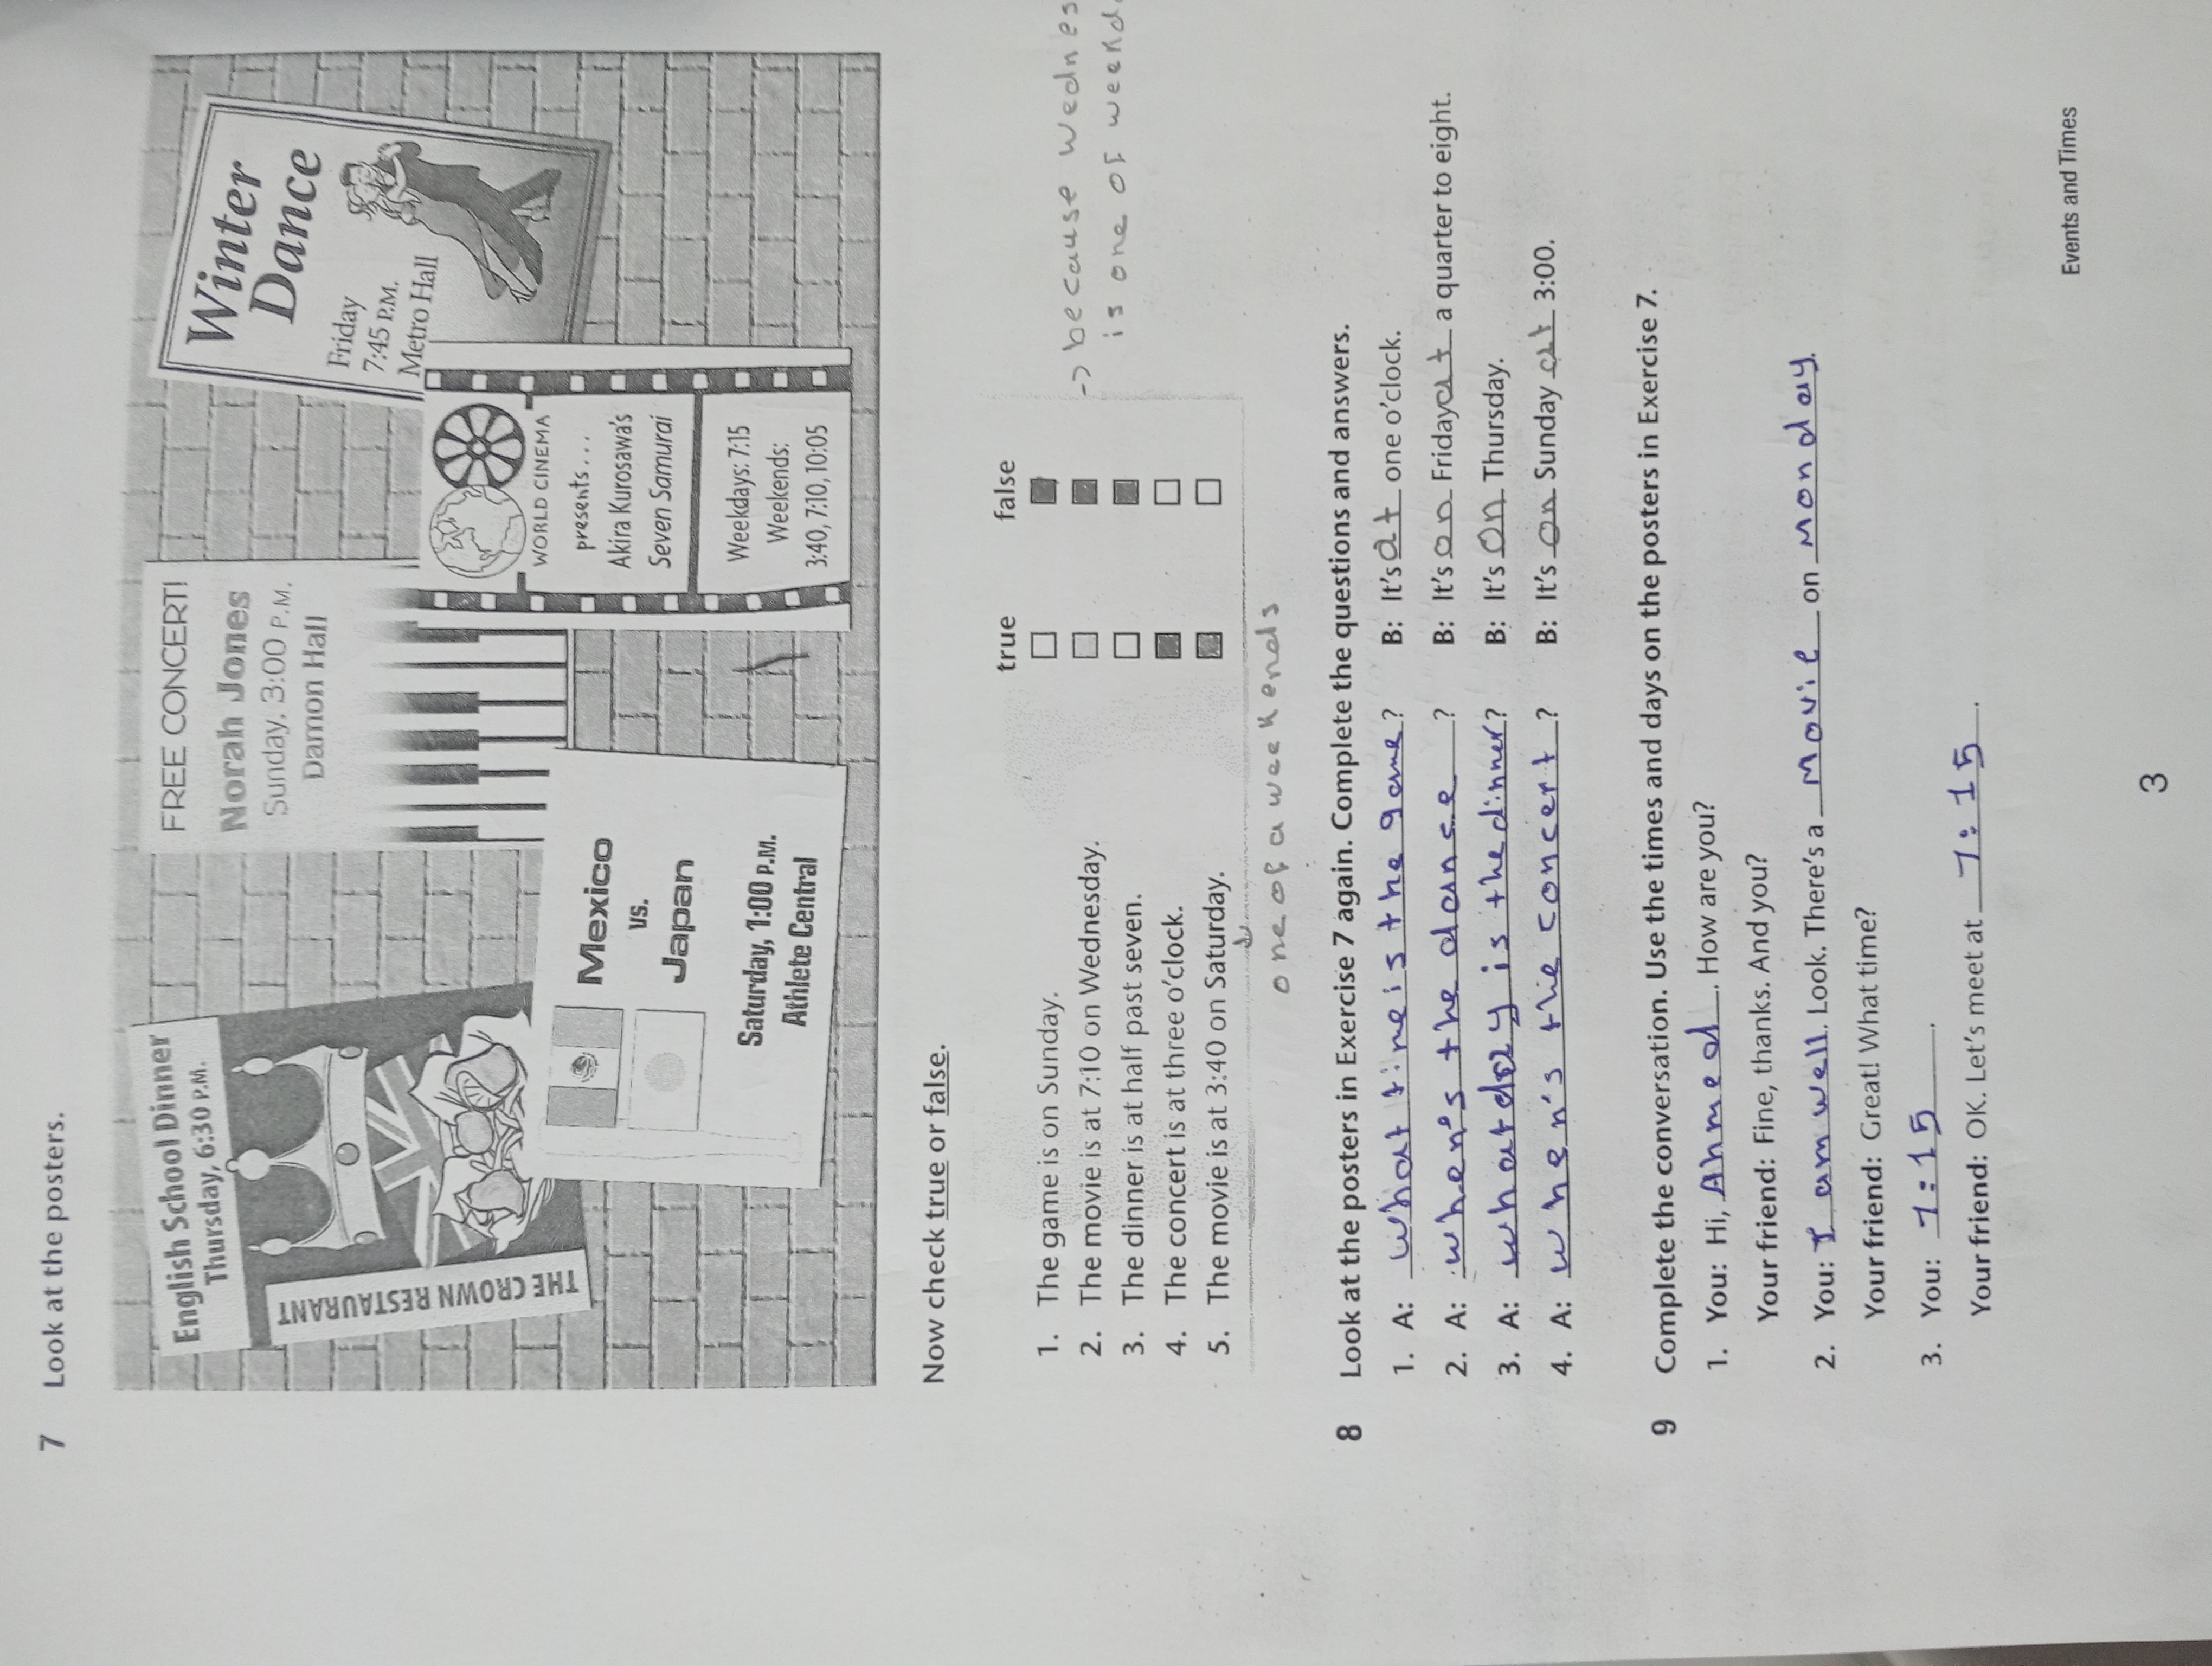 7 Look at the posters.
English School Dinner
Thursday, 6:30 P.M.
THE CROWN RESTAURANT
FREE CONCERT!
Norah Jones
Sunday, 3:00 P.M.
Damon Hall
Winter
Dance
Friday
7:45 P.M.
Metro Hall
Mexico
vs.
Japan
Saturday, 1:00 P.M.
Athlete Central
WORLD CINEMA
presents...
Akira Kurosawa's
Seven Samurai
Weekdays: 7:15
Weekends:
3:40, 7:10, 10:05
Now check true or false.
true false
1. The game is on Sunday.
2. The movie is at 7:10 on Wednesday.
-> because wednes
is one of weekd
3. The dinner is at half past seven.
4. The concert is at three o'clock.
5. The movie is at 3:40 on Saturday.
one of a weekends
8 Look at the posters in Exercise 7 again. Complete the questions and answers.
1. A: what time is the game ? B: It's at one o'clock.
2. A: when's the dance ? B: It's on Friday at a quarter to eight.
3. A: what day is the dinner? B: It's on Thursday.
4. A: when's the concert ? B: It's on Sunday at 3:00.
9 Complete the conversation. Use the times and days on the posters in Exercise 7.
1. You: Hi, Ahmed. How are you?
Your friend: Fine, thanks. And you?
2. You: I am well. Look. There's a Movie on Monday.
Your friend: Great! What time?
3. You: 7:15.
Your friend: OK. Let's meet at 7:15.
Events and Times
3